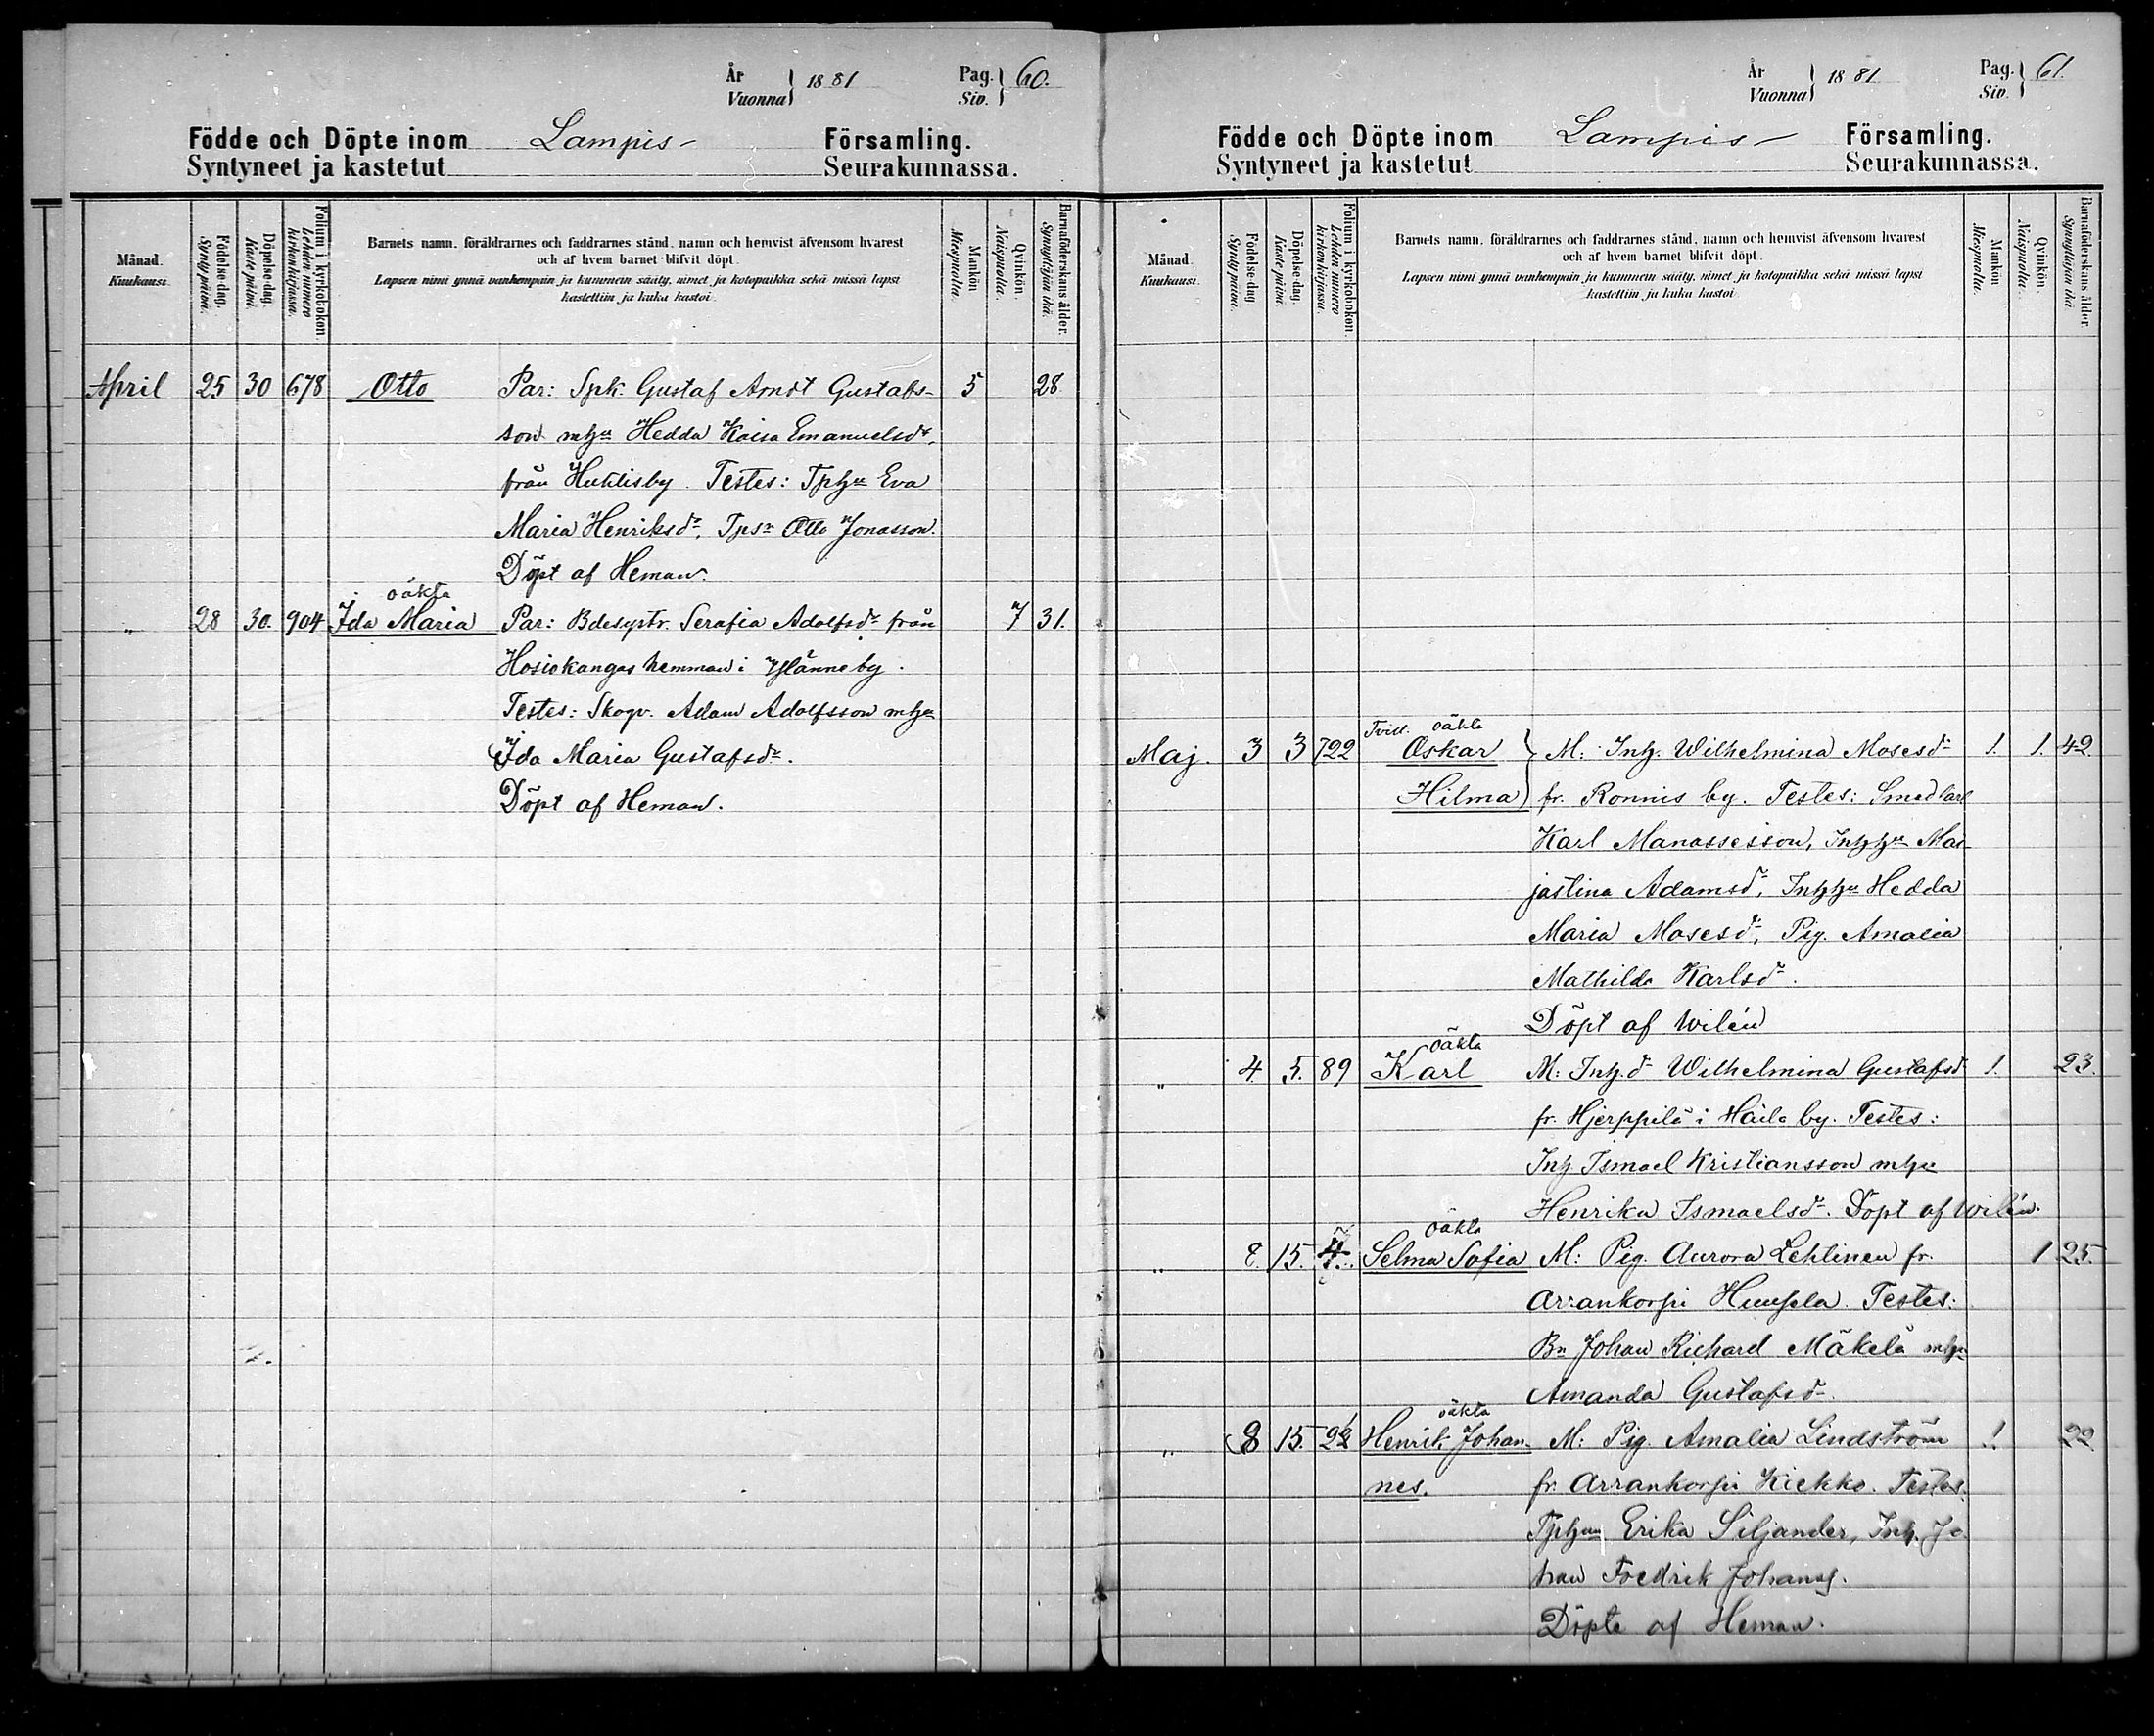 År
Vuonna } 1881
Pag.
Siv. } 60.
Födde och Döpte inom Lampis Församling.
Syntyneet ja kastetut Seurakunnassa.
Månad.
Kuukausi.
Födelse-dag.
Synty päivä.
Döpelse-dag.
Kaste päivä.
Folium i kyrkoboken.
Lehden numero
kirkonkirjassa.
Barnets namn, föräldrarnes och faddrarnes stånd, namn och hemvist äfvensom hvarest
och af hvem barnet blifvit döpt.
Lapsen nimi ynnä vanhempain ja kummein sääty, nimet ja kotopaikka sekä missä lapsi
kastettiin ja kuka kastoi.
Mankön
Miespuolia.
Qvinkön.
Naispuolia.
Barnaföderskans ålder.
Synnyttäjän ikä.
April 25 30 678 Otto Par: Spk. Gustaf Arndt Gustafs- 5 28
son mhu Hedda Kaisa Emanuelsdr,
från Huhtisby. Testes: Tphu Eva
Maria Henriksdr, Tpsn Otto Jonasson.
Döpt af Heman.
oäkta
„ 28 30. 904 Ida Maria Par: Bdesystr. Serafia Adolfsdr från 7 31.
Hosiokangas hemman i Ylänneby.
Testes: Skogv. Adam Adolfsson mhu
Ida Maria Gustafsdr.
Döpt af Heman.
År
Vuonna } 1881
Pag.
Siv. } 61.
Födde och Döpte inom Lampis Församling.
Syntyneet ja kastetut Seurakunnassa.
Månad.
Kuukausi.
Födelse-dag.
Synty päivä.
Döpelse-dag.
Kaste päivä.
Folium i kyrkoboken.
Lehden numero
kirkonkirjassa.
Barnets namn, föräldrarnes och faddrarnes stånd, namn och hemvist äfvensom hvarest
och af hvem barnet blifvit döpt.
Lapsen nimi ynnä vanhempain ja kummein sääty, nimet ja kotopaikka sekä missä lapsi
kastettiin ja kuka kastoi.
Mankön
Miespuolia.
Qvinkön.
Naispuolia.
Barnaföderskans ålder.
Synnyttäjän ikä.
Tvill. oäkta
Maj. 3 3 722 Oskar } M: Inh. Wilhelmina Mosesdr 1. 1. 42.
Hilma } fr. Ronnis by. Testes: Smed
Karl Manassesson, Inhhu Mar
jastina Adamsdr, Inhhu Hedda
Maria Mosesdr, Pig. Amalia
Mathilda Karlsdr.
Döpt af Wilén
oäkta
„ 4. 5. 89 Karl M: Inh.dr Wilhelmina Gustafsd. 1. 23.
fr. Hjerppilä i Haila by. Testes:
Inh Ismael Kristiansson mhu
Henrika Ismaelsdr. Döpt af Wilén.
oäkta
„ 8. 15. Selma Sofia M: Pig. Aurora Lehtinen fr. 1 25.
Arrankorpi Huupela. Testes:
Bn Johan Richard Mäkelä mhu
Amanda Gustafsdr.
oäkta
„ 8 15. Henrik Johan- M: Pig. Amalia Lindström 1. 22.
nes. fr. Arrankorpi Kiekko. Testes.
Tphun Erika Siljander, Inh. Jo
han Fredrik Johans.
Döpte af Heman.